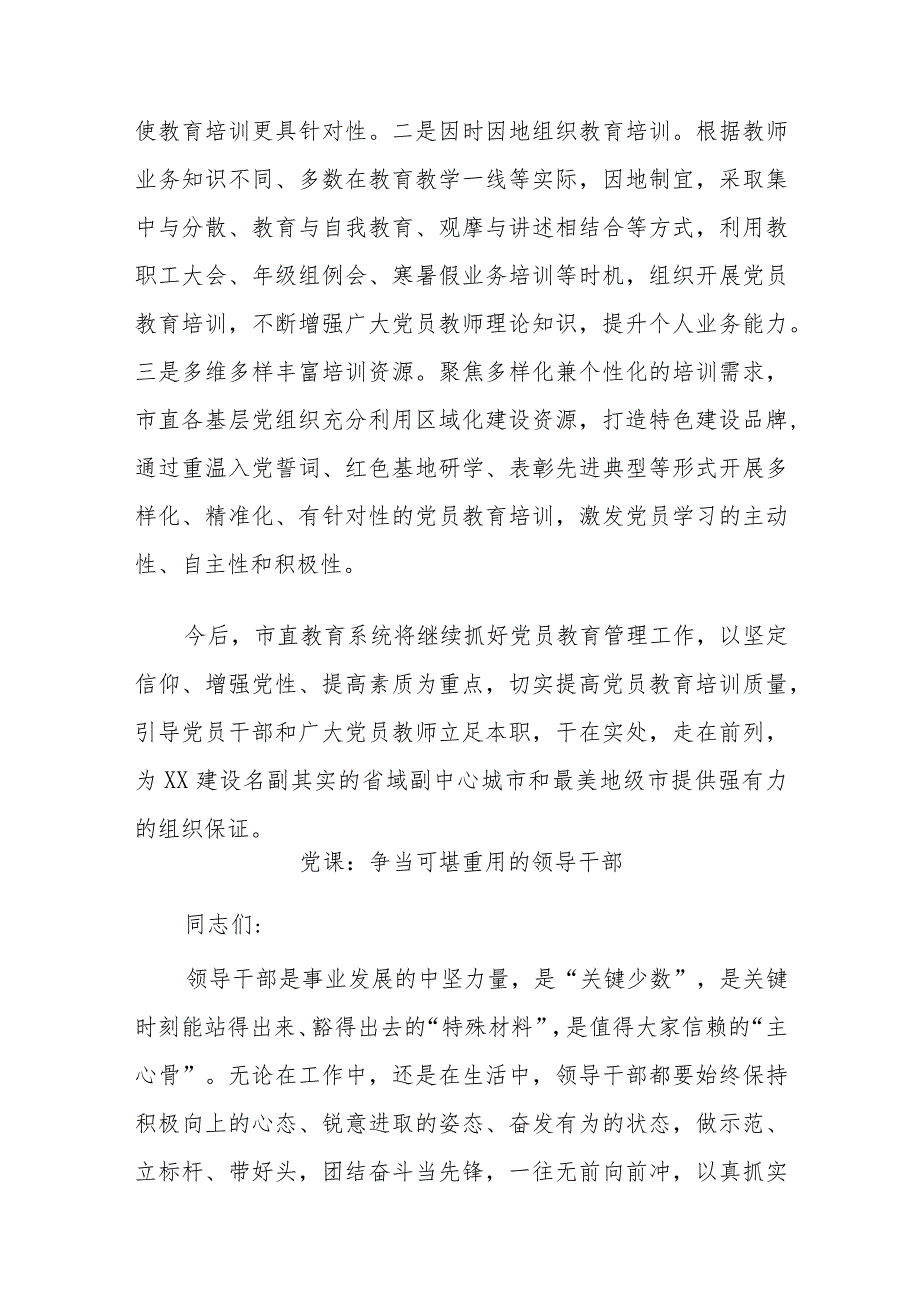 使教育培训更具针对性。二是因时因地组织教育培训。根据教师
业务知识不同、多数在教育教学一线等实际，因地制宜，采取集
中与分散、教育与自我教育、观摩与讲述相结合等方式，利用教
职工大会、年级组例会、寒暑假业务培训等时机，组织开展党员
教育培训，不断增强广大党员教师理论知识，提升个人业务能力。
三是多维多样丰富培训资源。聚焦多样化兼个性化的培训需求，
市直各基层党组织充分利用区域化建设资源，打造特色建设品牌，
通过重温入党誓词、红色基地研学、表彰先进典型等形式开展多
样化、精准化、有针对性的党员教育培训，激发党员学习的主动
性、自主性和积极性。
今后，市直教育系统将继续抓好党员教育管理工作，以坚定
信仰、增强党性、提高素质为重点，切实提高党员教育培训质量，
引导党员干部和广大党员教师立足本职，干在实处，走在前列，
为 XX 建设名副其实的省域副中心城市和最美地级市提供强有力
的组织保证。
党课：争当可堪重用的领导干部
同志们：
领导干部是事业发展的中坚力量，是“关键少数”，是关键
时刻能站得出来、豁得出去的“特殊材料”，是值得大家信赖的“主
心骨”。无论在工作中，还是在生活中，领导干部都要始终保持
积极向上的心态、锐意进取的姿态、奋发有为的状态，做示范、
立标杆、带好头，团结奋斗当先锋，一往无前向前冲，以真抓实